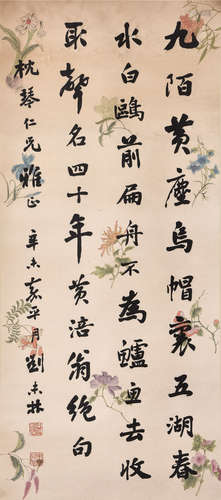 九陌黃塵烏帽裏五湖春
水白鷗前扁舟不為鱸魚去收
取聲名四十年黃涪翁絕句
枕琴仁兄雅正 辛未嘉平月劉未林